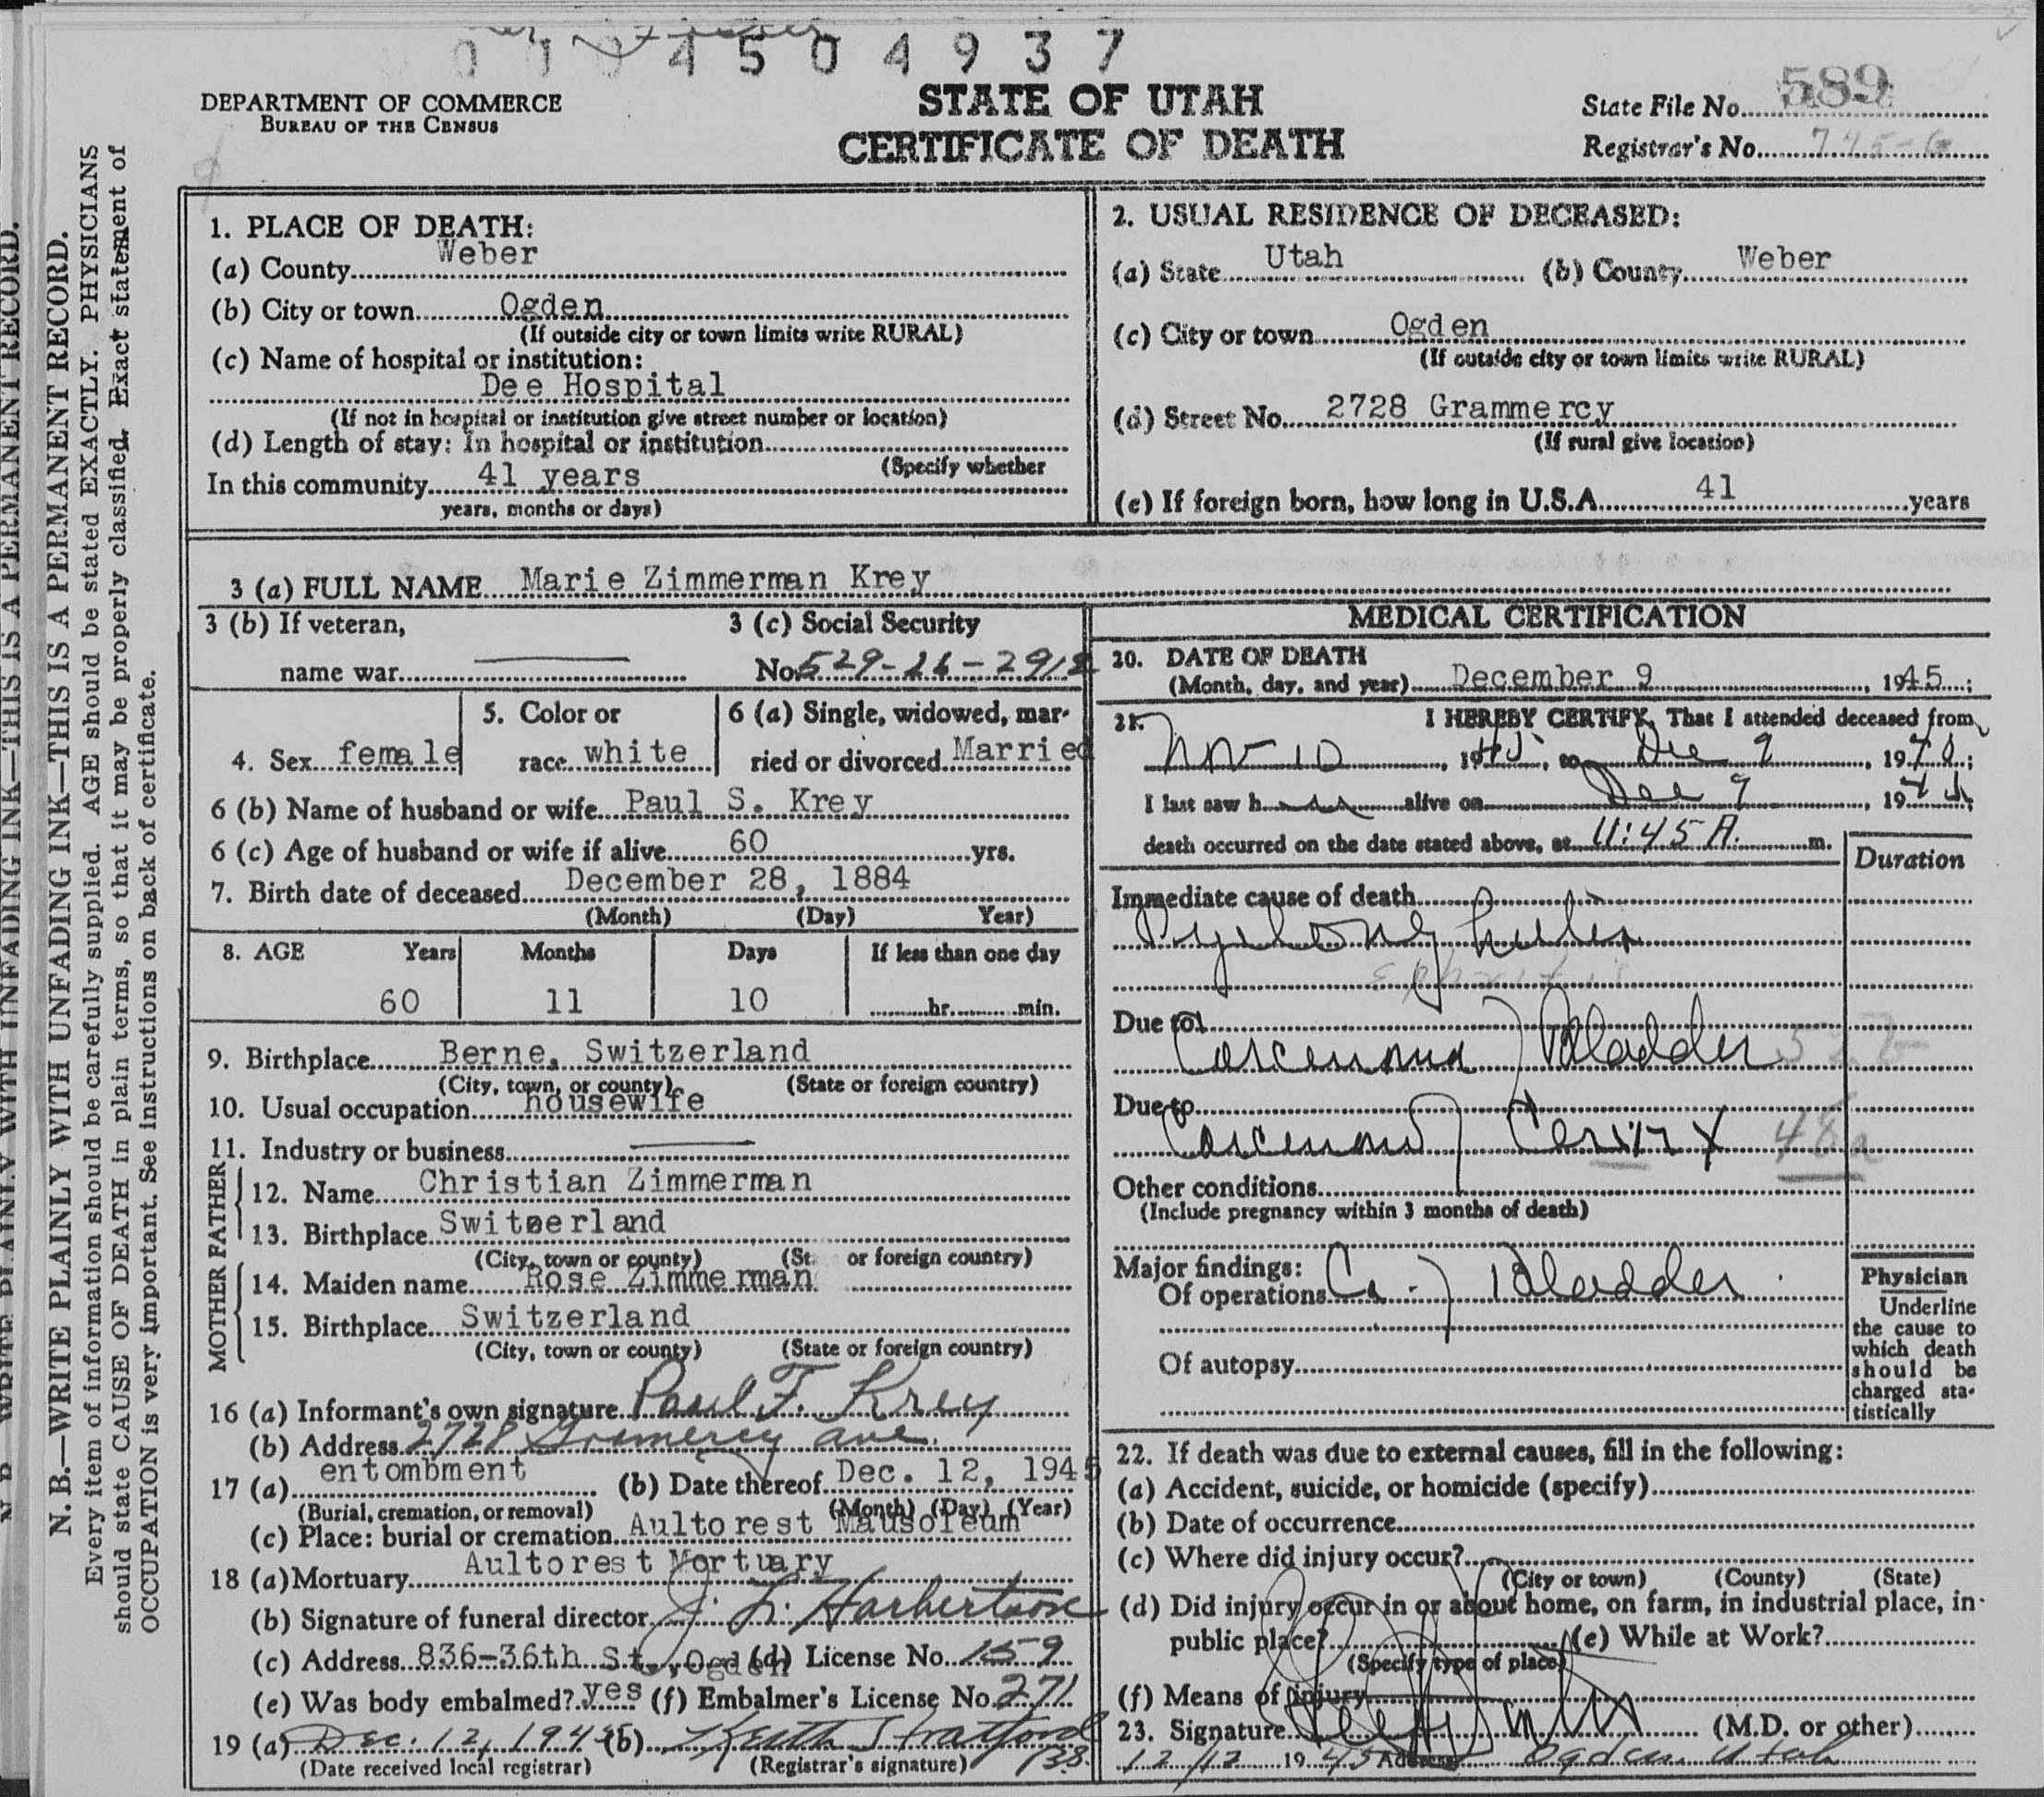 4 5 0 4 9 3 7
DEPARTMENT OF COMMERCE
BUREAU OF THE CENSUS
STATE OF UTAH
CERTIFICATE OF DEATH
State File No. 589
Registrar's No. 745-G
N. B.—WRITE PLAINLY WITH UNFADING INK—THIS IS A PERMANENT RECORD.
Every item of information should be carefully supplied. AGE should be stated EXACTLY. PHYSICIANS
should state CAUSE OF DEATH in plain terms, so that it may be properly classified. Exact statement of
OCCUPATION is very important. See instructions on back of certificate.
1. PLACE OF DEATH:
(a) County Weber
(b) City or town Ogden
(If outside city or town limits write RURAL)
(c) Name of hospital or institution:
Dee Hospital
(If not in hospital or institution give street number or location)
(d) Length of stay: In hospital or institution
(Specify whether
In this community 41 years
years, months or days)
2. USUAL RESIDENCE OF DECEASED:
(a) State Utah (b) County Weber
(c) City or town Ogden
(If outside city or town limits write RURAL)
(d) Street No. 2728 Grammercy
(If rural give location)
(e) If foreign born, how long in U.S.A. 41 years
3 (a) FULL NAME Marie Zimmerman Krey
3 (b) If veteran,
name war
3 (c) Social Security
No. 529-26-2912
4. Sex female
5. Color or
race white
6 (a) Single, widowed, mar-
ried or divorced Married
6 (b) Name of husband or wife Paul S. Krey
6 (c) Age of husband or wife if alive 60 yrs.
7. Birth date of deceased December 28, 1884
(Month) (Day) Year)
8. AGE Years Months Days If less than one day
60 11 10 hr. min.
9. Birthplace Berne, Switzerland
(City, town, or county) (State or foreign country)
10. Usual occupation housewife
11. Industry or business
FATHER
12. Name Christian Zimmerman
13. Birthplace Switzerland
(City, town or county) (St. or foreign country)
MOTHER
14. Maiden name Rose Zimmerman
15. Birthplace Switzerland
(City, town or county) (State or foreign country)
16 (a) Informant's own signature Paul F. Krey
(b) Address 2728 Gramercy ave.
17 (a) entombment (b) Date thereof Dec. 12, 1945
(Burial, cremation, or removal) (Month) (Day) (Year)
(c) Place: burial or cremation Aultorest Mausoleum
18 (a) Mortuary Aultorest Mortuary
(b) Signature of funeral director J. L. Harbertson
(c) Address 836-36th St., Ogden (d) License No. 159
(e) Was body embalmed? yes (f) Embalmer's License No. 271
19 (a) Dec. 12, 1945 (b) Keith Stratford
(Date received local registrar) (Registrar's signature)
MEDICAL CERTIFICATION
20. DATE OF DEATH
(Month, day, and year) December 9, 1945;
21. I HEREBY CERTIFY, That I attended deceased from
Nov 10, 1945, to Dec 9, 19
I last saw h alive on Dec 9, 19
death occurred on the date stated above, at 11:45 A. m.
Duration
Immediate cause of death
Due to
Carcenoma of Bladder
Due to
Carcenoma of Cervix
Other conditions
(Include pregnancy within 3 months of death)
Major findings:
Of operations Ca of Bladder
Of autopsy
Physician
Underline
the cause to
which death
should be
charged sta-
tistically
22. If death was due to external causes, fill in the following:
(a) Accident, suicide, or homicide (specify)
(b) Date of occurrence
(c) Where did injury occur?
(City or town) (County) (State)
(d) Did injury occur in or about home, on farm, in industrial place, in-
public place? (e) While at Work?
(Specify type of place)
(f) Means of injury
23. Signature (M.D. or other)
12/12 1945 Address Ogden, Utah